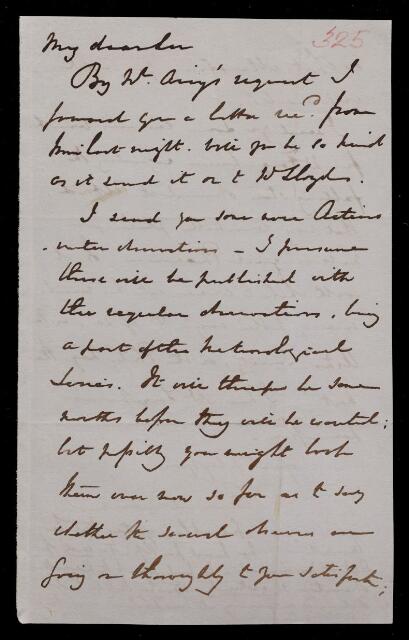 325
My dear Sir
By Mr. Airy's request I
forward you a letter recd. from
him last night. Will you be so kind
as to send it on to Dr Lloyd.
I send you some more Actino
-meter observations - I presume
these will be published with
the regular observations, being
a part of the Meteorological
Series. It will therefore be some
months before they will be wanted;
but possibly you might look
them over now so far as to say
whether the several observers are
going on thoroughly to your satisfactn;